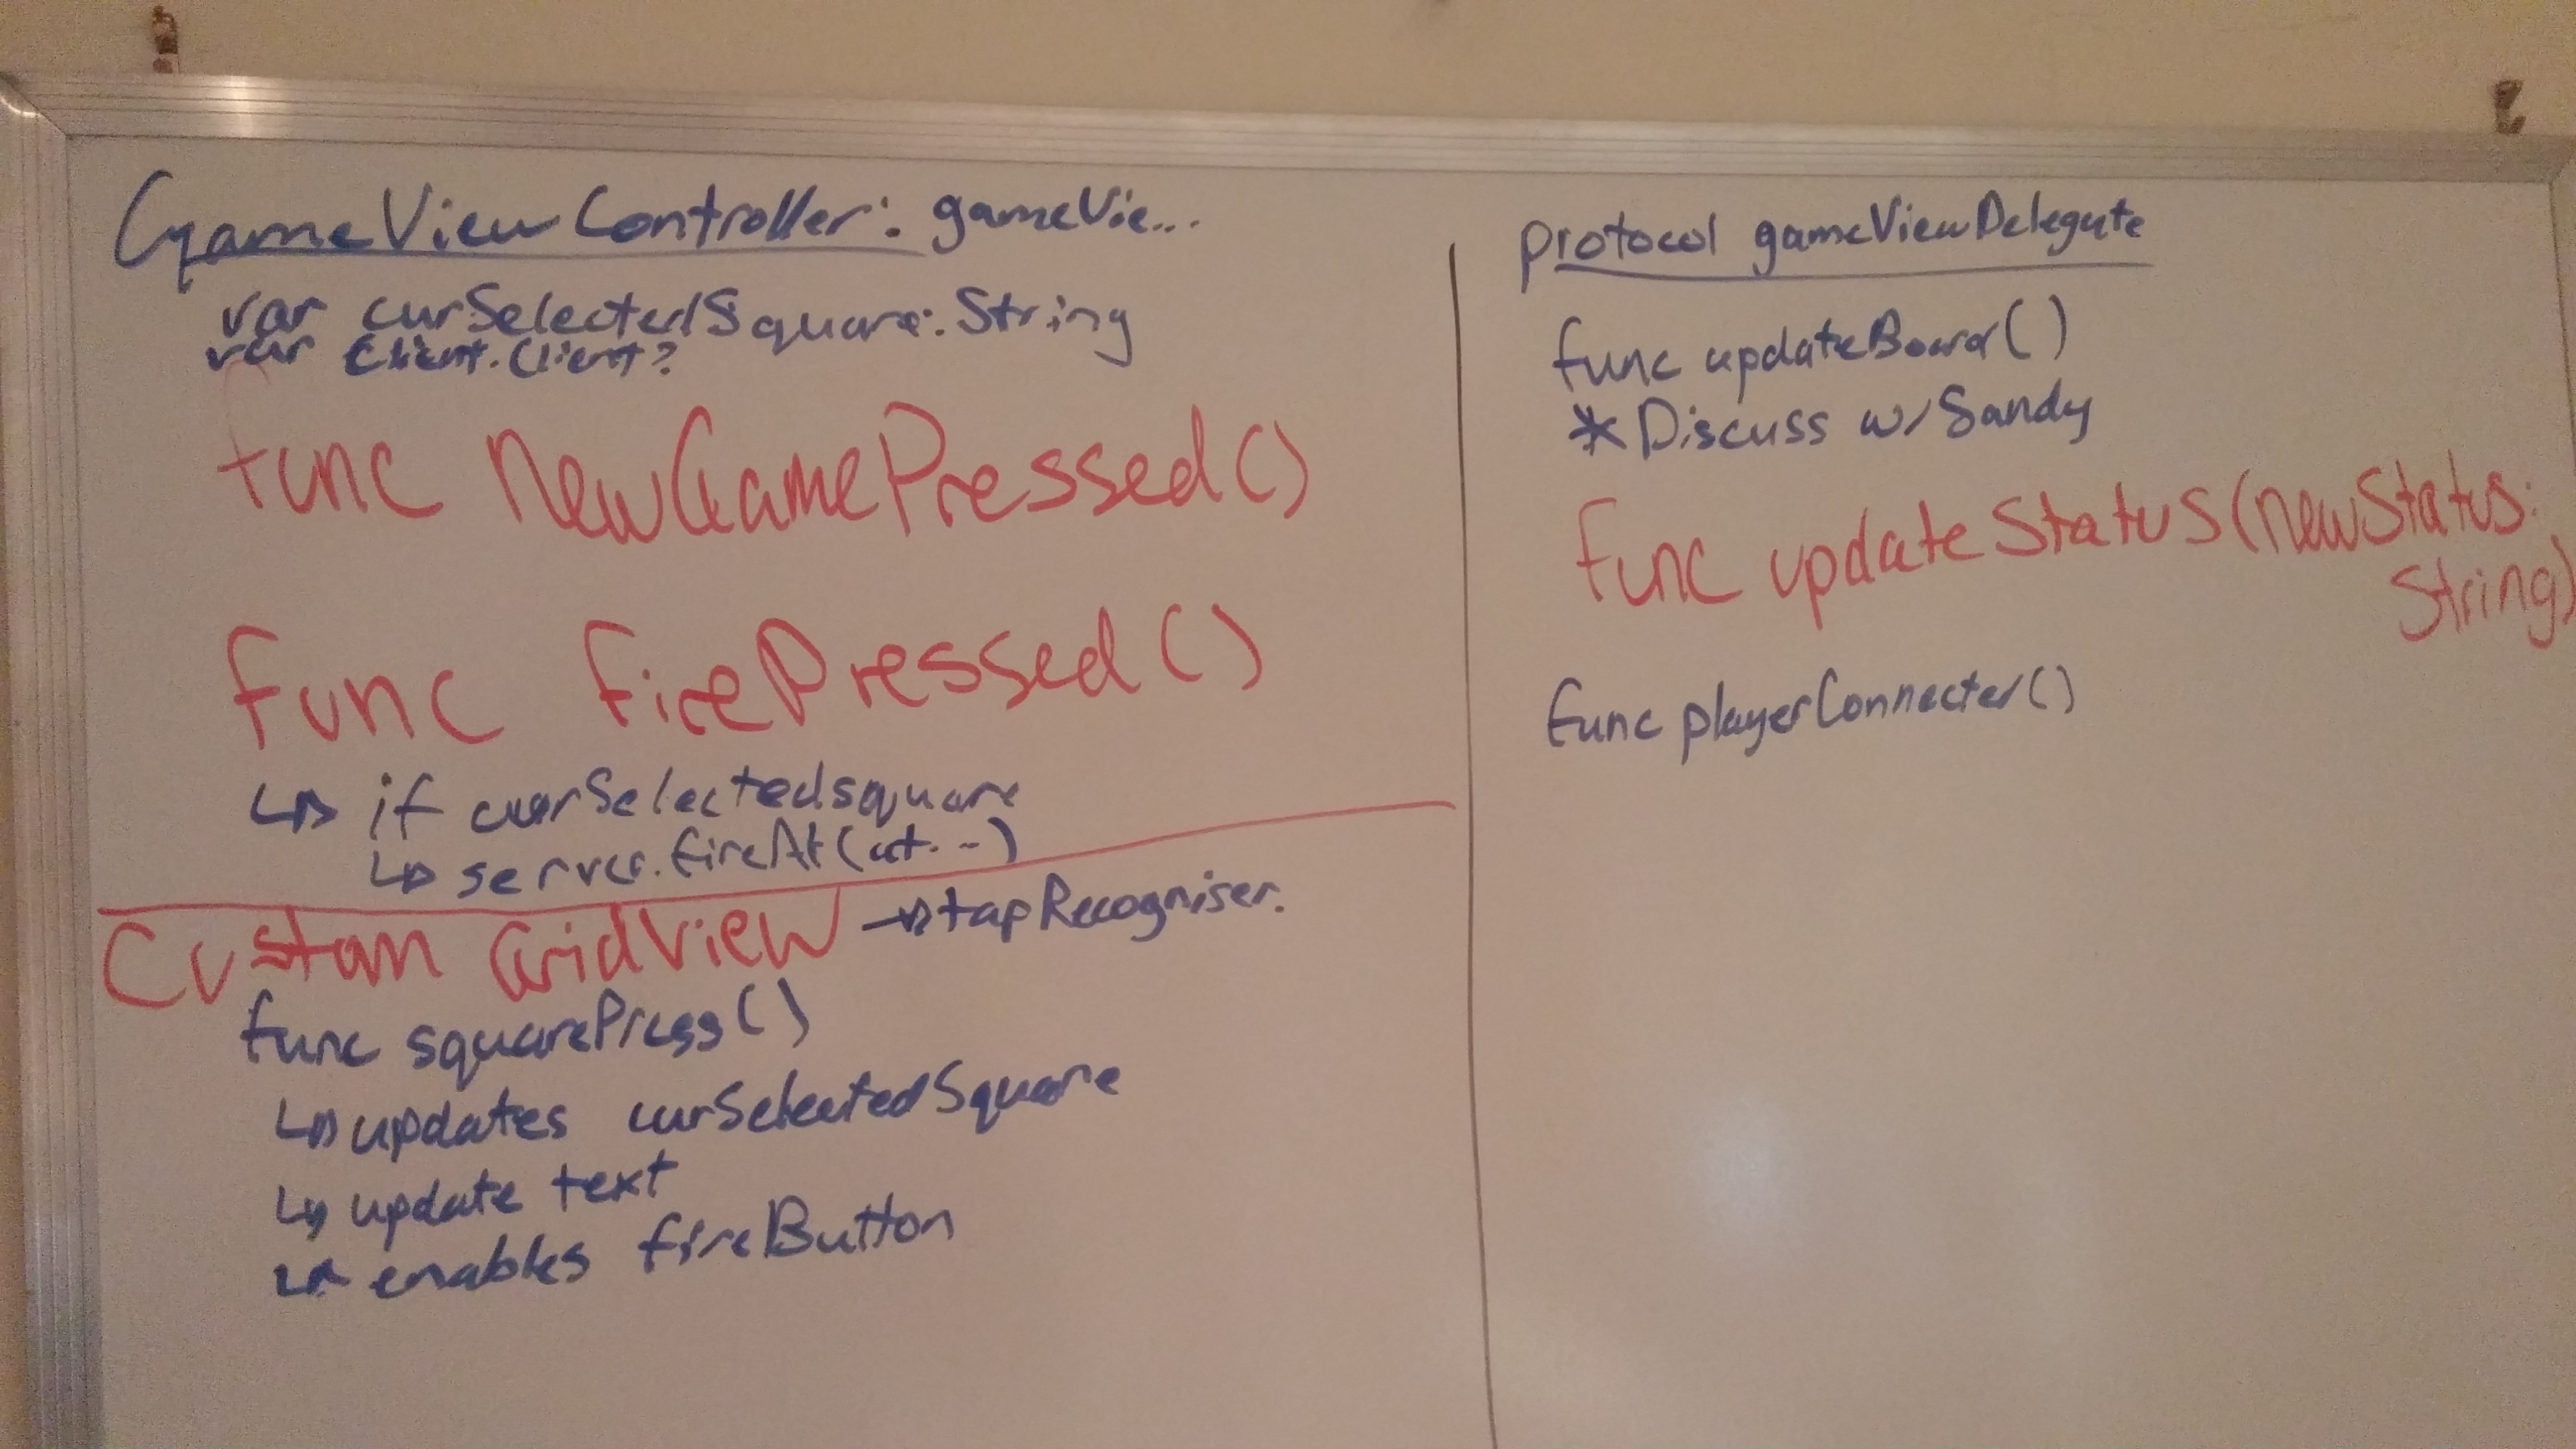 GameViewController: gameVie...
var curSelectedSquare: String
var Client: Client?
func newGamePressed()
func firePressed()
↳ if curSelectedsquare
↳ server.fireAt(
Custom GridView → tapRecogniser.
func squarePress()
↳ updates curSelectedSquare
↳ update text
↳ enables fireButton
protocol gameViewDelegate
func updateBoard()
* Discuss w/ Sandy
func updateStatus(newStatus:
String)
func playerConnected()